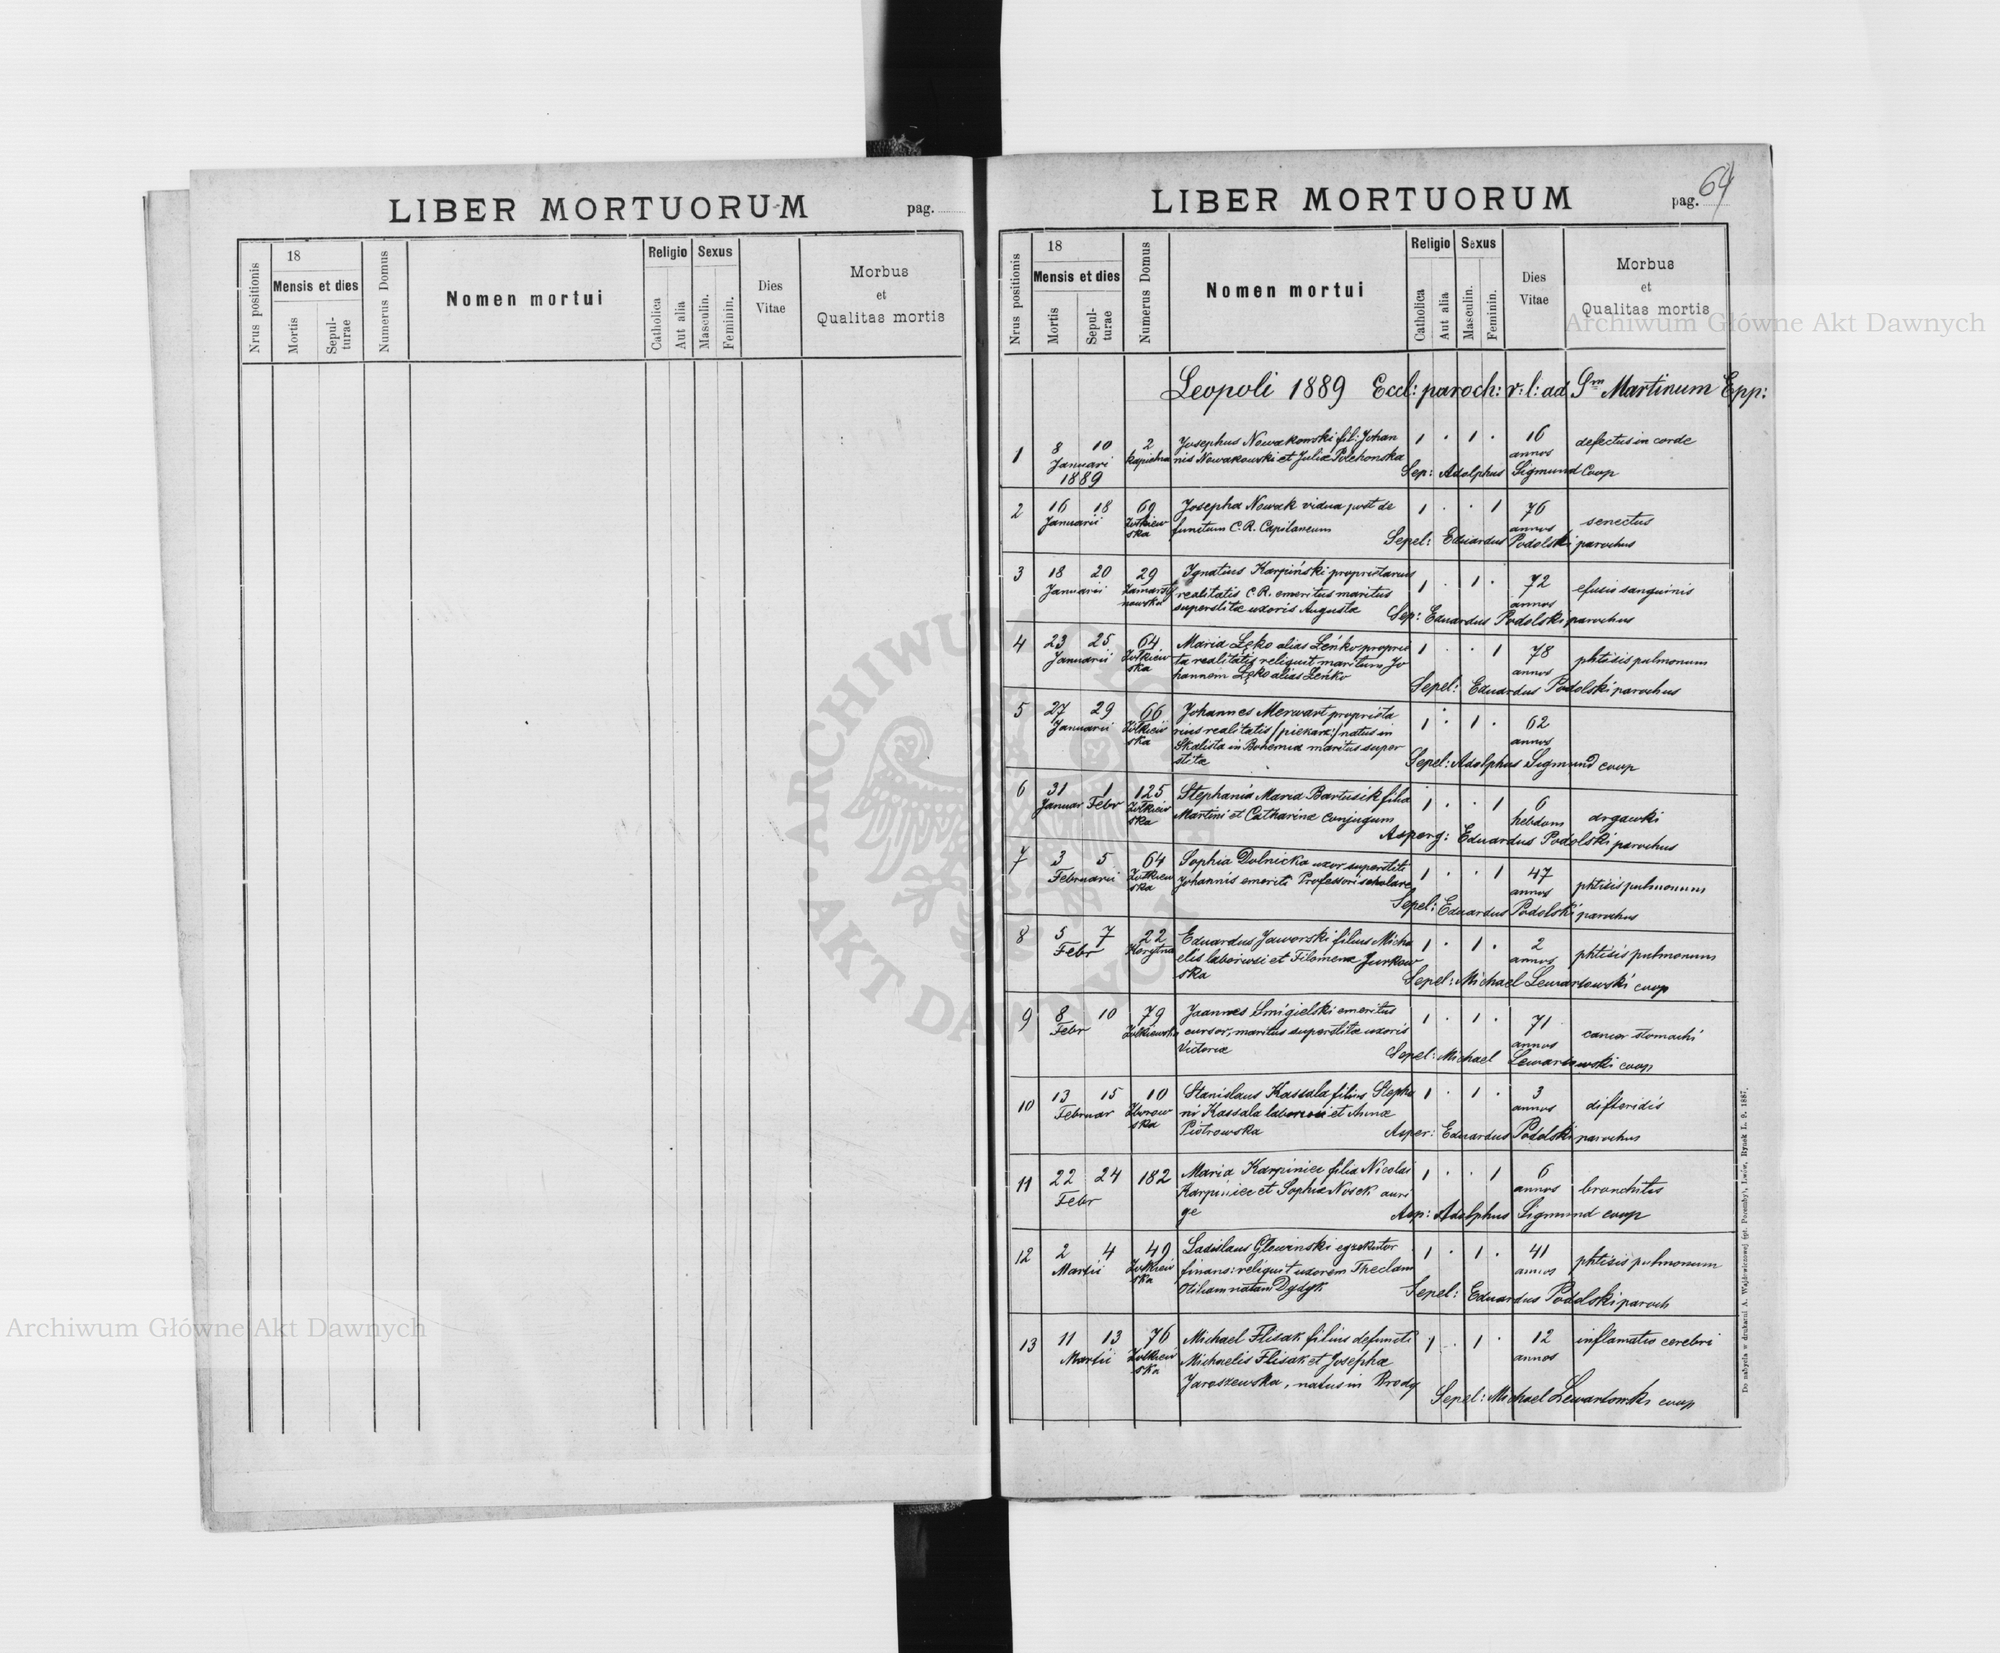 LIBER MORTUORUM
pag.
Nrus positionis
18
Mensis et dies
Mortis
Sepul-
turae
Numerus Domus
Nomen mortui
Religio
Catholica
Aut alia
Sexus
Masculin.
Feminin.
Dies
Vitae
Morbus
et
Qualitas mortis
LIBER MORTUORUM
pag. 64
Nrus positionis
18
Mensis et dies
Mortis
Sepul-
turae
Numerus Domus
Nomen mortui
Religio
Catholica
Aut alia
Sexus
Masculin.
Feminin.
Dies
Vitae
Morbus
et
Qualitas mortis
Leopoli 1889 Eccl: paroch: r: l: ad Sm Martinum Epp:
1 8 10 2 Josephus Nowakowski fil: Johan 1 . 1 . 16 defectus in corde
Januari nis Nowakowski et Juliæ annos
1889 Sep: Adolphus Sigmund Coop
2 16 18 69 Josepha Nowak vidua post de 1 . . 1 76 senectus
Januarii Żółkiew functum C. R. annos
ska Sepel: Eduardus Podolski parochus
3 18 20 29 Ignatius Karpiński proprietarius 1 . 1 . 72 efusio sanguinis
Januarii realitatis C. R. emeritus maritus annos
superstitæ uxoris Augustæ Sep: Eduardus Podolski parochus
4 23 25 64 Maria Łęko alias Leńko proprie 1 . . 1 78 phtisis pulmonum
Januarii Żółkiew ta realitatis reliquit maritum Jo annos
ska hannem Łęko alias Leńko Sepel: Eduardus Podolski parochus
5 27 29 66 Johannes Merwart proprieta 1 . 1 . 62
Januarii Żółkiew rius realitatis /piekarz/ natus in annos
ska Skalista in Bohemia maritus super
stitæ Sepel: Adolphus Sigmund coop
6 31 1 125 Stephania Maria Bartusik filia 1 . . 1 6 drgawki
Januar Febr Żółkiew Martini et Catharinæ conjugum hebdom
ska Asperg: Eduardus Podolski parochus
7 3 5 64 Sophia Dolnicka uxor superstiti 1 . . 1 47 phtisis pulmonum
Februarii Żółkiew Johannis emeriti Professori scholare annos
ska Sepel: Eduardus Podolski parochus
8 5 7 22 Eduardus Jaworski filius Micha 1 . 1 . 2 phtisis pulmonum
Febr Korytna elis laboriosi et Filomenæ Jurkow annos
ska Sepel: Michael Lewartowski coop
9 8 10 79 Joannes Śmigielski emeritus 1 . 1 . 71 cancer stomachi
Febr Żółkiewska cursor, maritus superstitæ uxoris annos
Victoriæ Sepel: Michael Lewartowski coop
10 13 15 10 Stanislaus Kassala filius Stepha 1 . 1 . 3 difteridis
Februar Zborow ni Kassala laboriosi et Annæ annos
ska Piotrowska Asper: Eduardus Podolski parochus
11 22 24 182 Maria Karpiniec filia Nicolai 1 . . 1 6 bronchitis
Febr Karpiniec et Sophiæ Nosek auri annos
gæ Asp: Adolphus Sigmund coop
12 2 4 49 Ladislaus Glewinski egzekutor 1 . 1 . 41 phtisis pulmonum
Martii Żółkiew finans: reliquit uxorem Theclam annos
ska Otiliam natam Dydyk Sepel: Eduardus Podolski paroch
13 11 13 76 Michael Flisak filius defuncti 1 . 1 . 12 inflamatio cerebri
Martii Żółkiew Michaelis Flisak et Josephæ annos
ska Jaroszewska, natus in Brody Sepel: Michael Lewartowski coop
Archiwum Główne Akt Dawnych
Archiwum Główne Akt Dawnych
ARCHIWUM GŁÓWNE AKT DAWNYCH